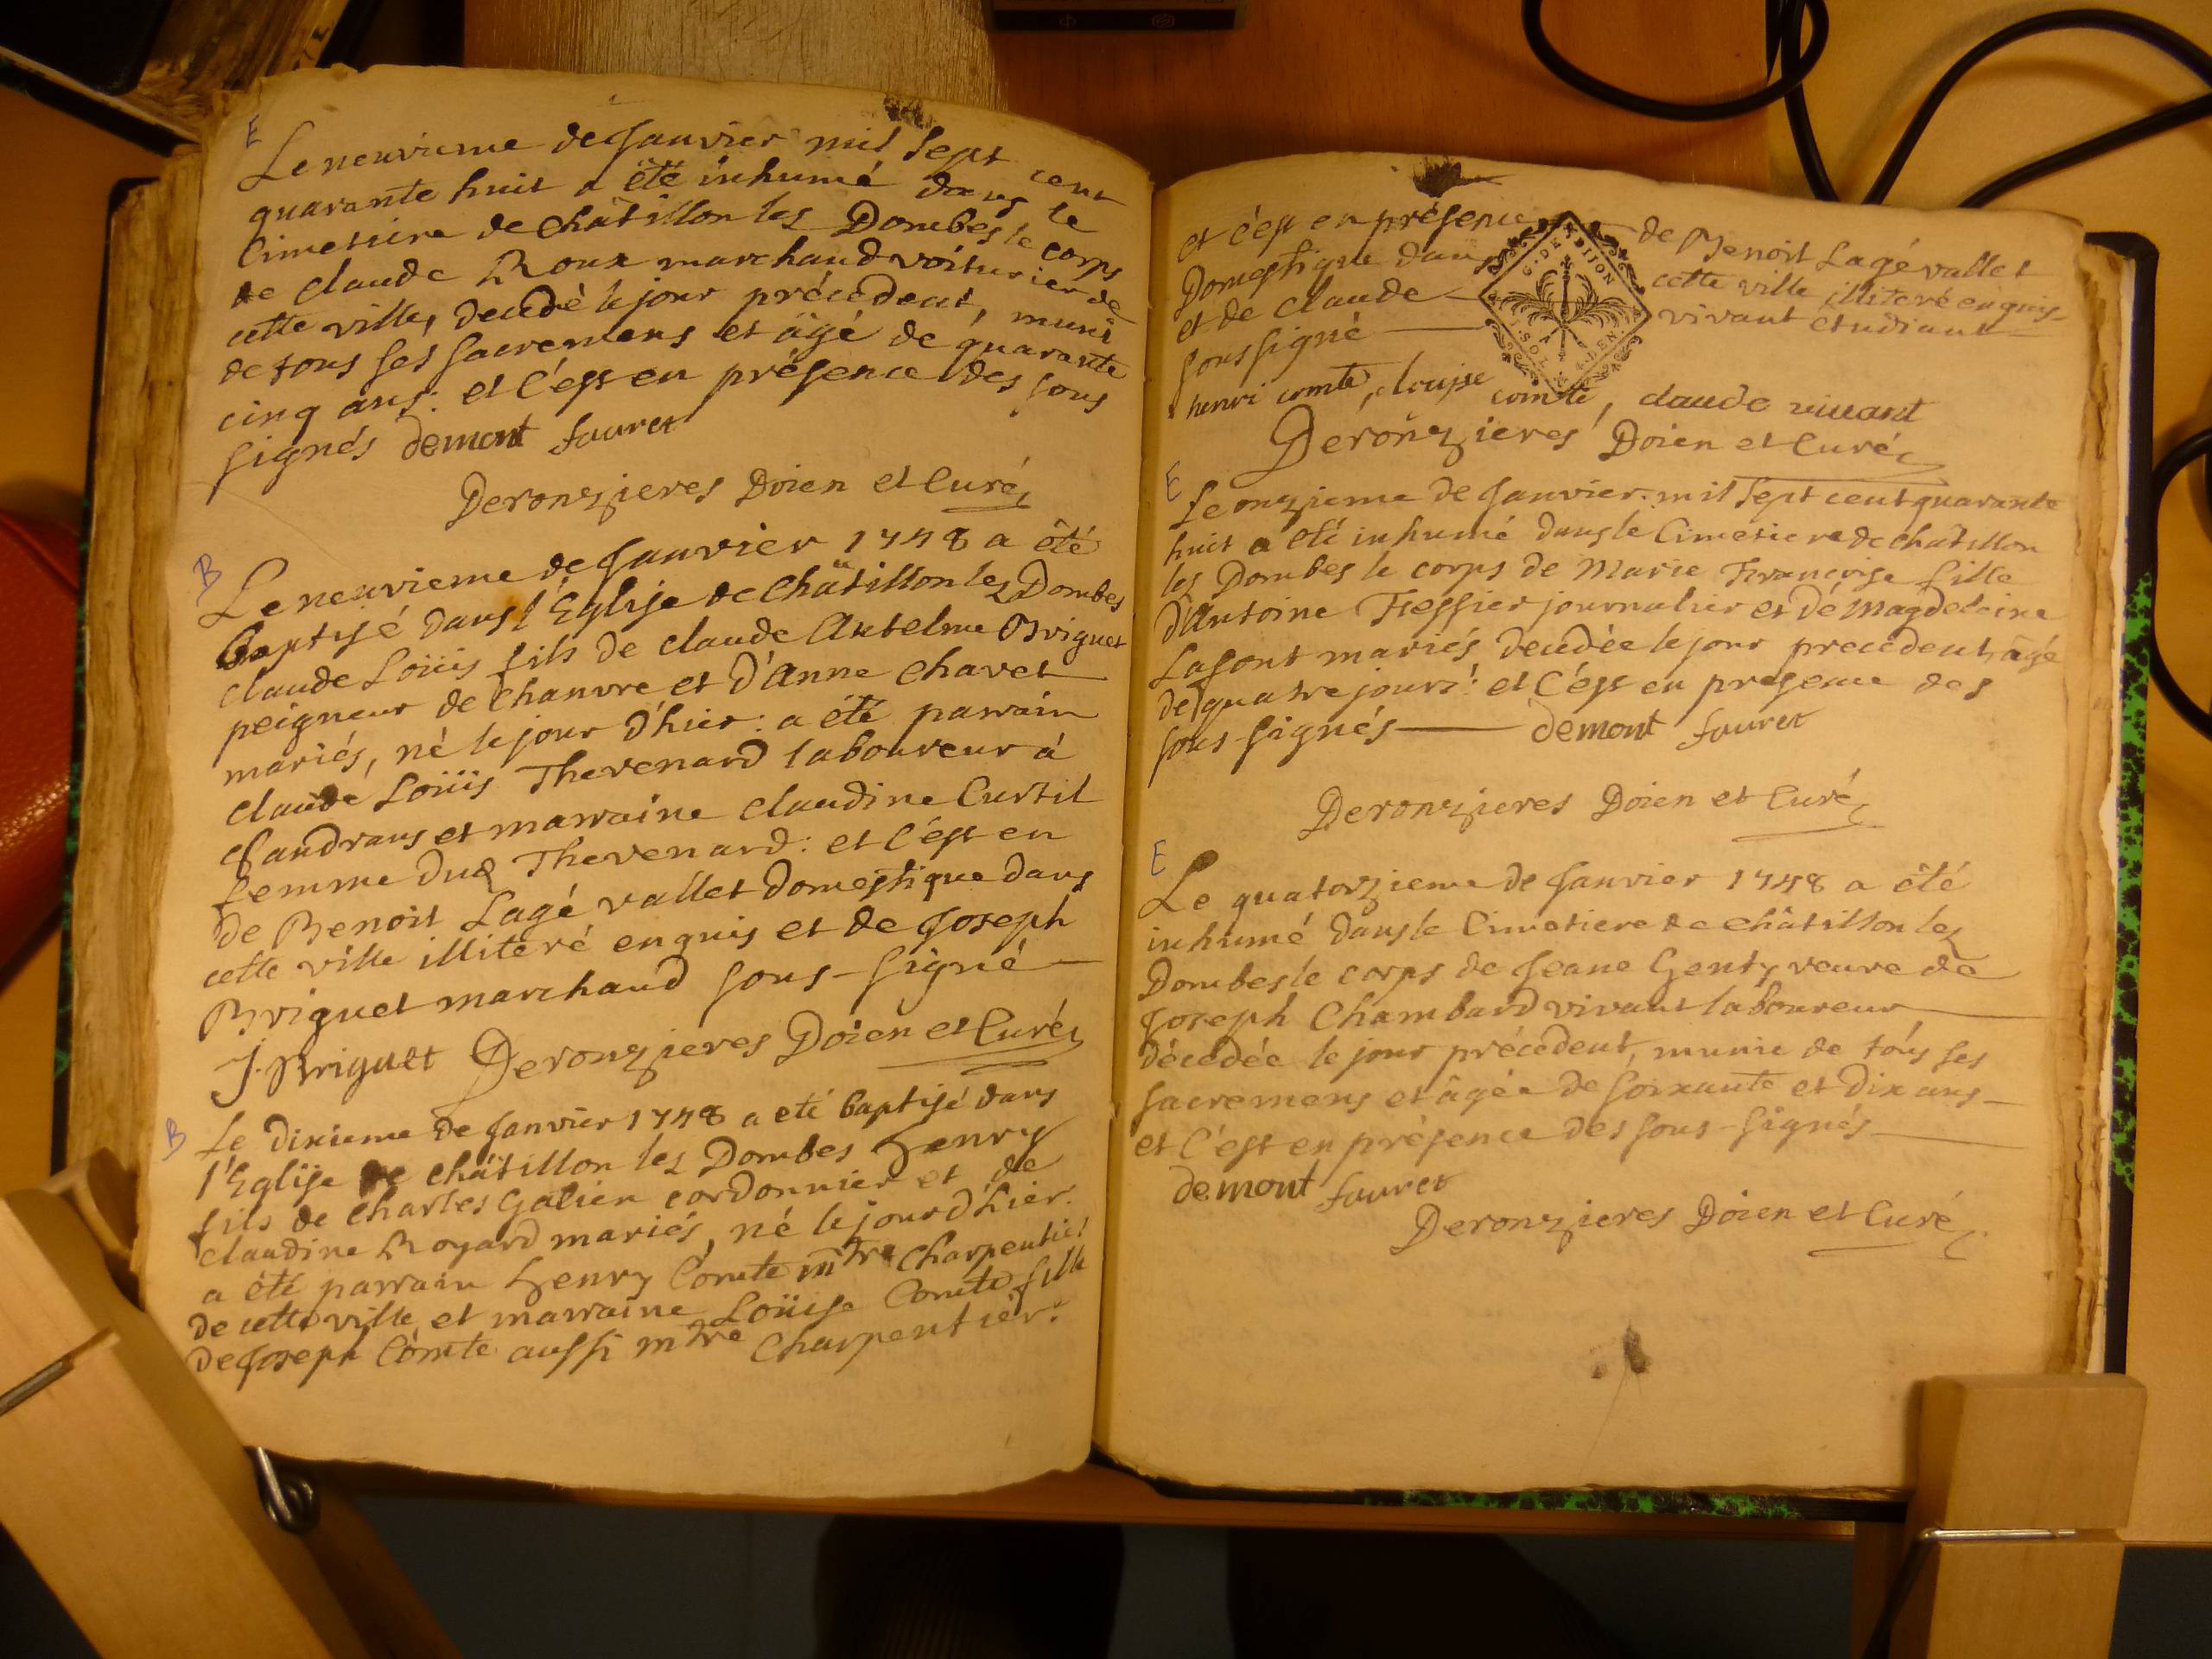 E
Le neuvieme de Janvier mil sept cent
quarante huit a été inhumé dans le
Cimetiere de Châtillon les Dombes le corps
de Claude Roux marchand voiturier de
cette ville, decedé le jour précédent, muni
de tous ses sacremens et âgé de quarante
cinq ans: et C'est en présence des sous
signés demont fauret
Deronzieres Doien et Curé
B
Le neuvieme de Janvier 1748 a été
Baptisé dans l'Eglise de Châtillon les Dombes
Claude Loüis fils de Claude Antelme Briguet
peigneur de Chanvre et d'Anne Chavet
mariés, né le jour d'hier: a été parrain
Claude Loüis Thevenard laboureur à
Sandrans et marraine Claudine Curtil
femme dud Thevenard: et C'est en
de Benoit Lagé vallet domestique dans
cette ville illiteré enquis et de Joseph
Briguet marchand sous-signé
J. Briguet Deronzieres Doien et Curé
B
Le dixieme de Janvier 1748 a été baptisé dans
l'Eglise de Châtillon les Dombes Henry
fils de Charles Galien cordonnier et de
Claudine Royard mariés, né le jour d'hier:
a été parrain Henry Comte mtre Charpentier
de cette ville et marraine Loüise Comte fille
de Joseph Comte aussi mtre Charpentier:
et c'est en présence de Benoit Lagé vallet
Domestique dans cette ville illiteré enquis
et de Claude vivant étudiant
soussigné
G. DE DIJON
henri comte, louise comte, claude vivant
Deronzieres Doien et Curé
E
Le onzieme de Janvier mil sept cent quarante
huit a été inhumé dans le Cimetiere de Châtillon
les Dombes le corps de Marie Françoise fille
d'Antoine Tiessier journalier et de Magdeleine
Lafont mariés decedée le jour precedent, âgé
de quatre jours: et C'est en presence des
sous-signés demont fauret
Deronzieres Doien et Curé
E
Le quatorzieme de Janvier 1748 a été
inhumé dans le Cimetiere de Châtillon les
Dombes le corps de Jeane Genty veuve de
Joseph Chambard vivant laboureur
décédée le jour précédent, munie de tous ses
sacremens et âgée de soixante et dix ans
et C'est en présence des sous-signés
demont fauret
Deronzieres Doien et Curé